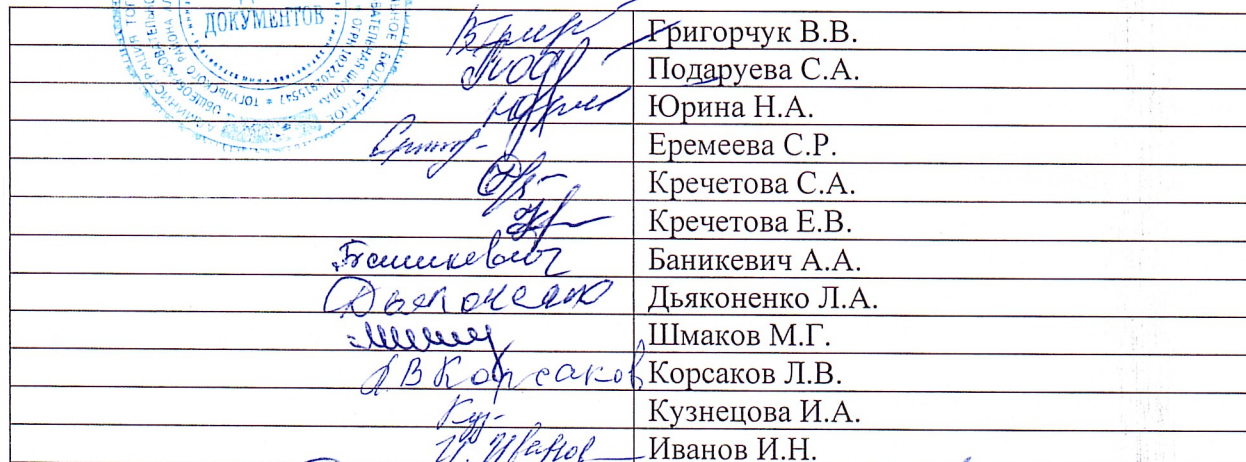 ДОКУМЕНТОВ
Григорчук В.В.
Подаруева С.А.
Юрина Н.А.
Еремеева С.Р.
Кречетова С.А.
Кречетова Е.В.
Баникевич Баникевич А.А.
Дьяконенко Дьяконенко Л.А.
Шмаков М.Г.
ЛВКорсаков Корсаков Л.В.
Куз- Кузнецова И.А.
И. Иванов Иванов И.Н.